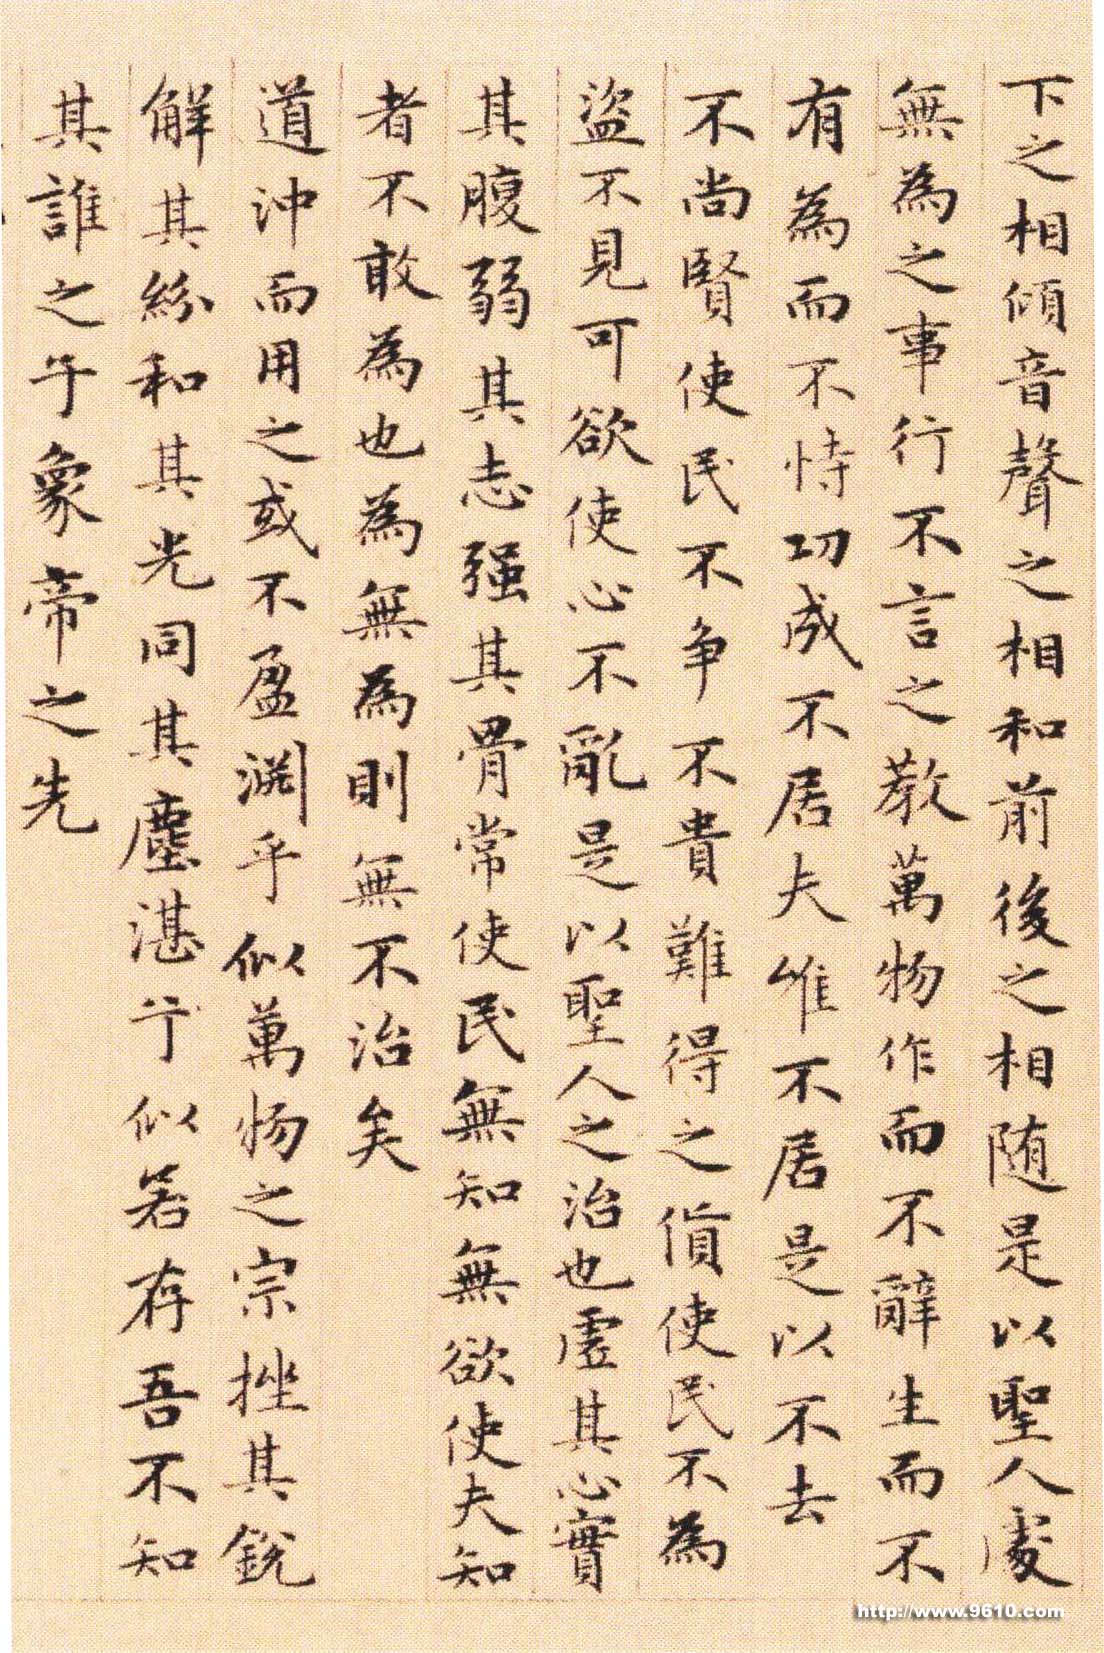 下之相傾音聲之相和前後之相随是以聖人處
無為之事行不言之教萬物作而不辭生而不
有為而不恃功成不居夫惟不居是以不去
不尚賢使民不争不貴難得之貨使民不為
盜不見可欲使心不亂是以聖人之治也虛其心實
其腹弱其志强其骨常使民無知無欲使夫知
者不敢為也為無為則無不治矣
道沖而用之或不盈淵乎似萬物之宗挫其銳
解其紛和其光同其塵湛兮似若存吾不知
其誰之子象帝之先
http://www.9610.com